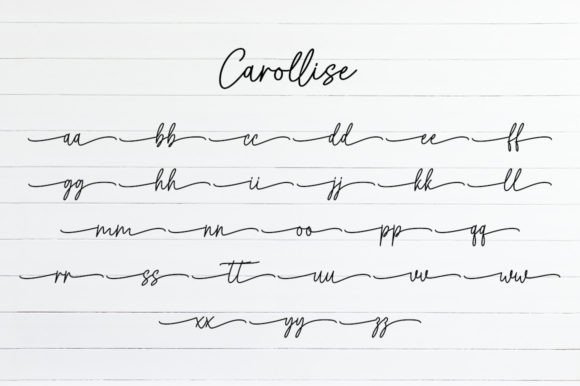 Carollise
aa bb cc dd ee ff
gg hh ii jj kk ll
mm nn oo pp qq
rr ss tt uu vv ww
xx yy zz